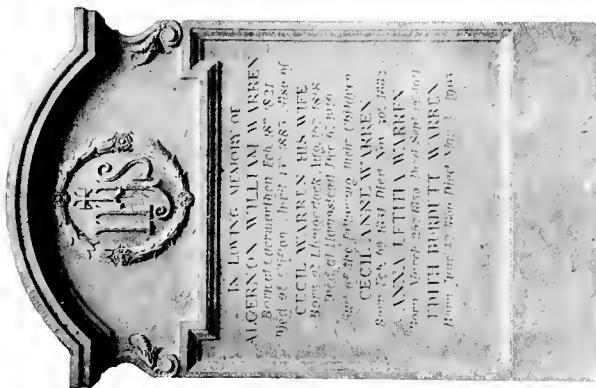 IHS
IN LOVING MEMORY OF
ALGERNON WILLIAM WARREN
Born at Caermarthen Feb. 18th 1821
Died at April 1885 also of
CECIL WARREN HIS WIFE
Born at 1818
Died at Hampstead Dec 6, 1910
And of the following their Children
CECIL ANNE WARREN
Born Feb. 1851 Died Nov. 1883
ANNA LETITIA WARREN
Born March 25th 1850 Died Sept.
EDITH BURDETT WARREN
Born June Died 1903